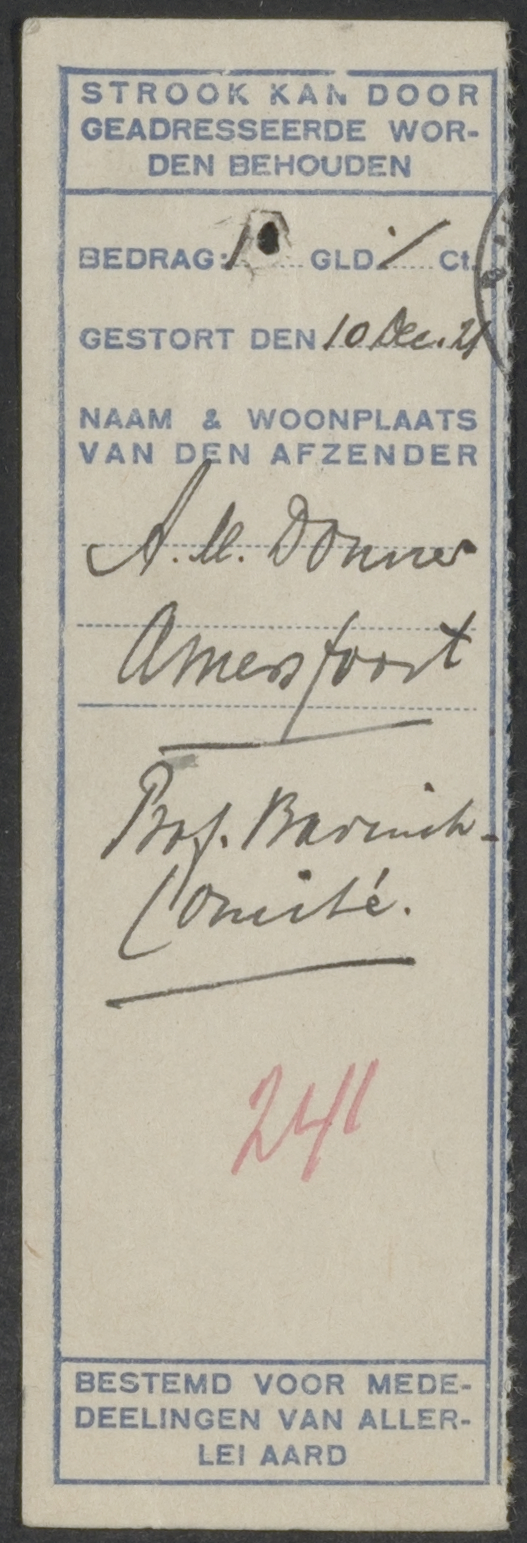 STROOK KAN DOOR
GEADRESSEERDE WOR-
DEN BEHOUDEN
BEDRAG: GLD Ct.
GESTORT DEN 10 Dec. 21
NAAM & WOONPLAATS
VAN DEN AFZENDER
A. M. Donner
Amersfoort
Prof. Bavinck-
Comité.
241
BESTEMD VOOR MEDE-
DEELINGEN VAN ALLER-
LEI AARD